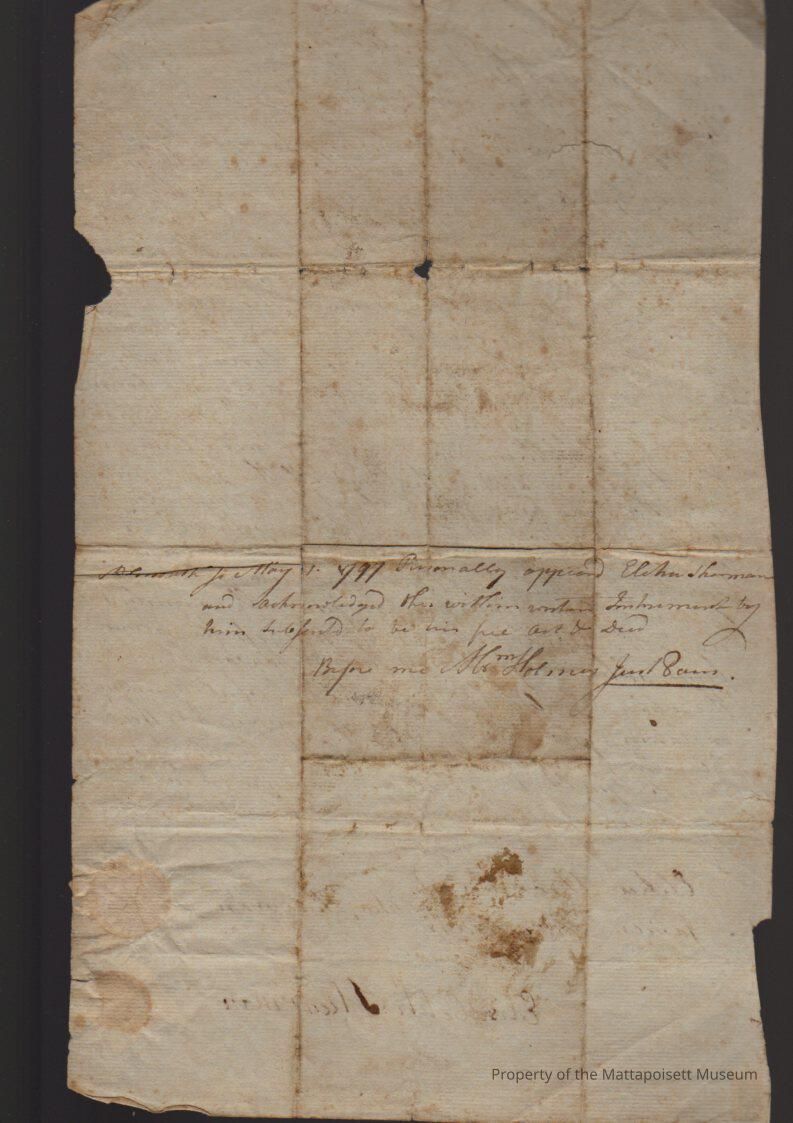 Plymouth ss May 1. 1797 Personally appeard Elisha Sherman
and acknowledged the within written Instrument by
him subscrib'd to be his free act & Deed
Before me Abm Holmes Just Pacis.
Property of the Mattapoisett Museum